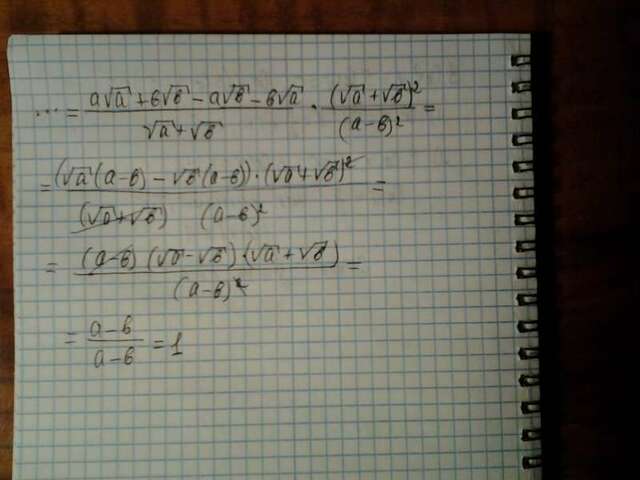 ... = (a√a + в√в − a√в − в√a)/(√a + √в) · (√a + √в)²/(a − в)² =
= ((√a(a − в) − √в(a − в)) · (√a + √в)²)/((√a + √в) (a − в)²) =
= ((a − в)(√a − √в)(√a + √в))/(a − в)² =
= (a − в)/(a − в) = 1